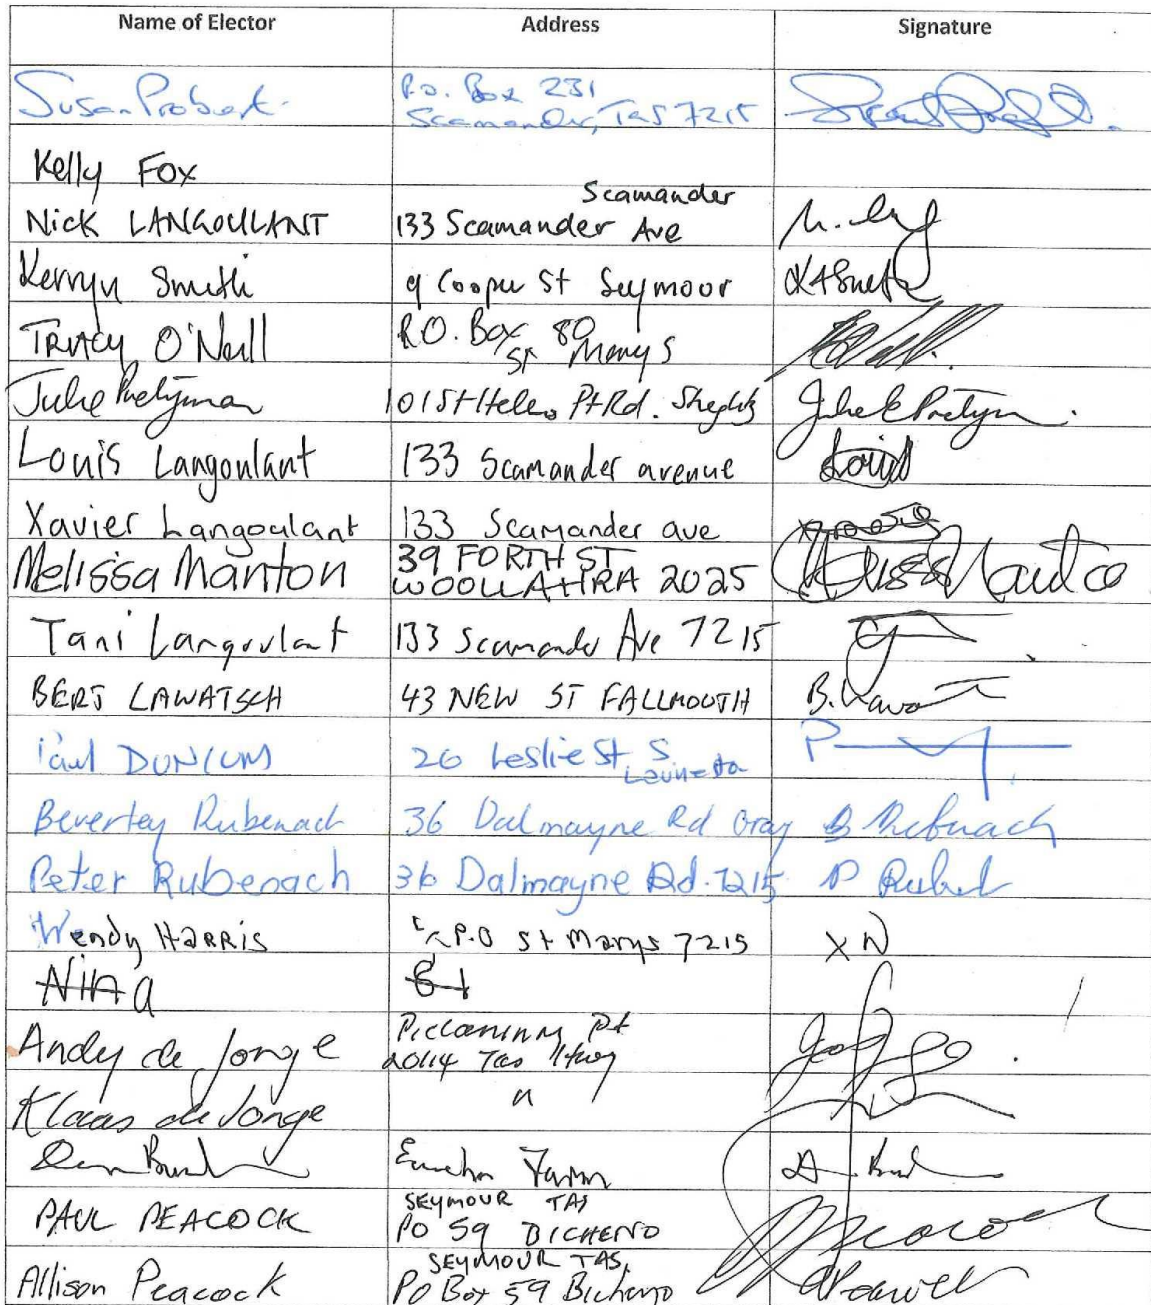 Name of Elector Address Signature
Susan Probert P.O. Box 231
Scamander, Tas 7215
Kelly Fox
Scamander
Nick LANGOULANT 133 Scamander Ave
Kerryn Smith 9 Cooper St Seymour
TRACY O'Neill P.O. Box 80
St Marys
Julie Pretyman 101 St Helens Pt Rd. Julie E Pretyman
Louis Langoulant 133 Scamander avenue Louis
Xavier Langoulant 133 Scamander ave
Melissa Manton 39 FORTH ST
WOOLLAHRA 2025 Melissa Manton
Tani Langoulant 133 Scamander Ave 7215
BERT LAWATSCH 43 NEW ST FALLMOUTH
Paul DUNCUM 26 Leslie St S
Launceston
Beverley Rubenach 36 Dalmayne Rd Gray B Rubenach
Peter Rubenach 36 Dalmayne Rd. 7215 P
Wendy HARRIS P.O St Marys 7215
Nina
Andy de Jonge Piccaninny Pt
Tas Hwy
Klaas de Jonge "
Farm
SEYMOUR TAS
PAUL PEACOCK PO 59 BICHENO
SEYMOUR TAS.
Allison Peacock PO Box 59 Bicheno